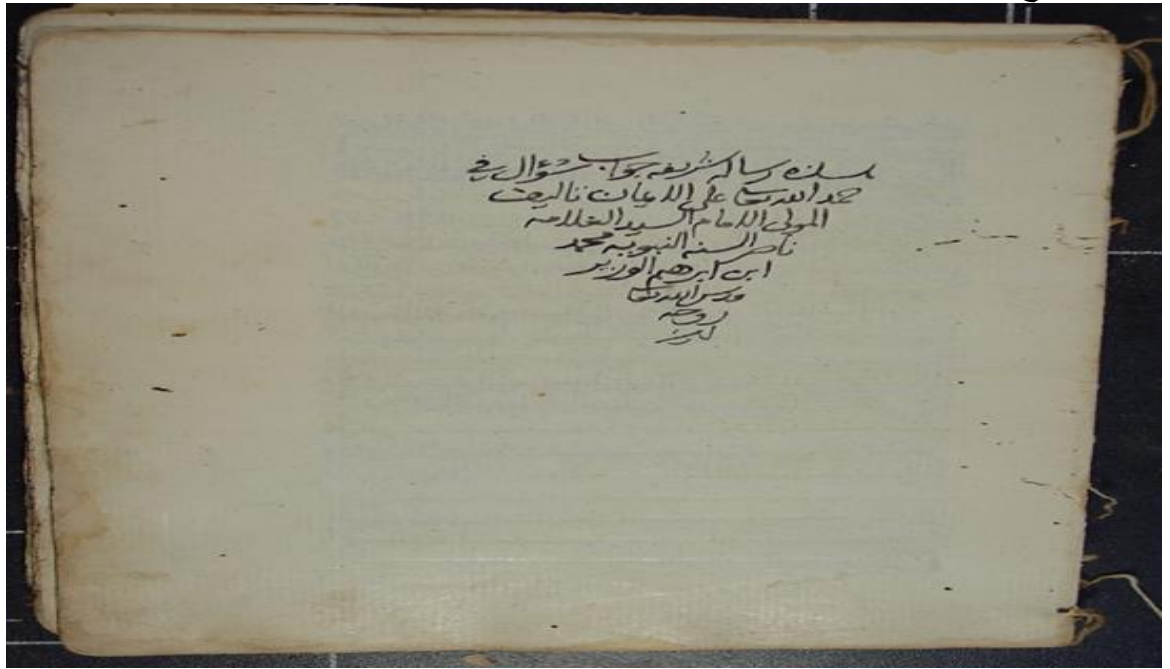 هذه رسالة شريفه جواب سؤال في
حمد الله تعالى على الايمان تاليف
المولى الامام السيد العلامه
ناصر السنه النبويه محمد
ابن ابرهيم الوزير
قدس الله تعالى
روحه